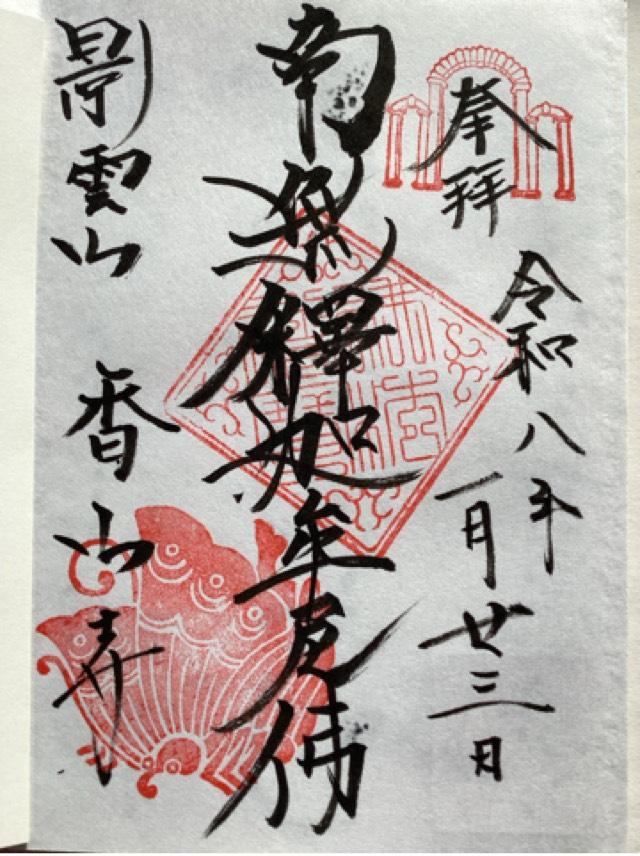 奉拝
令和八年
一月廿三日
南無釋迦牟尼佛
影雲山 香山寺